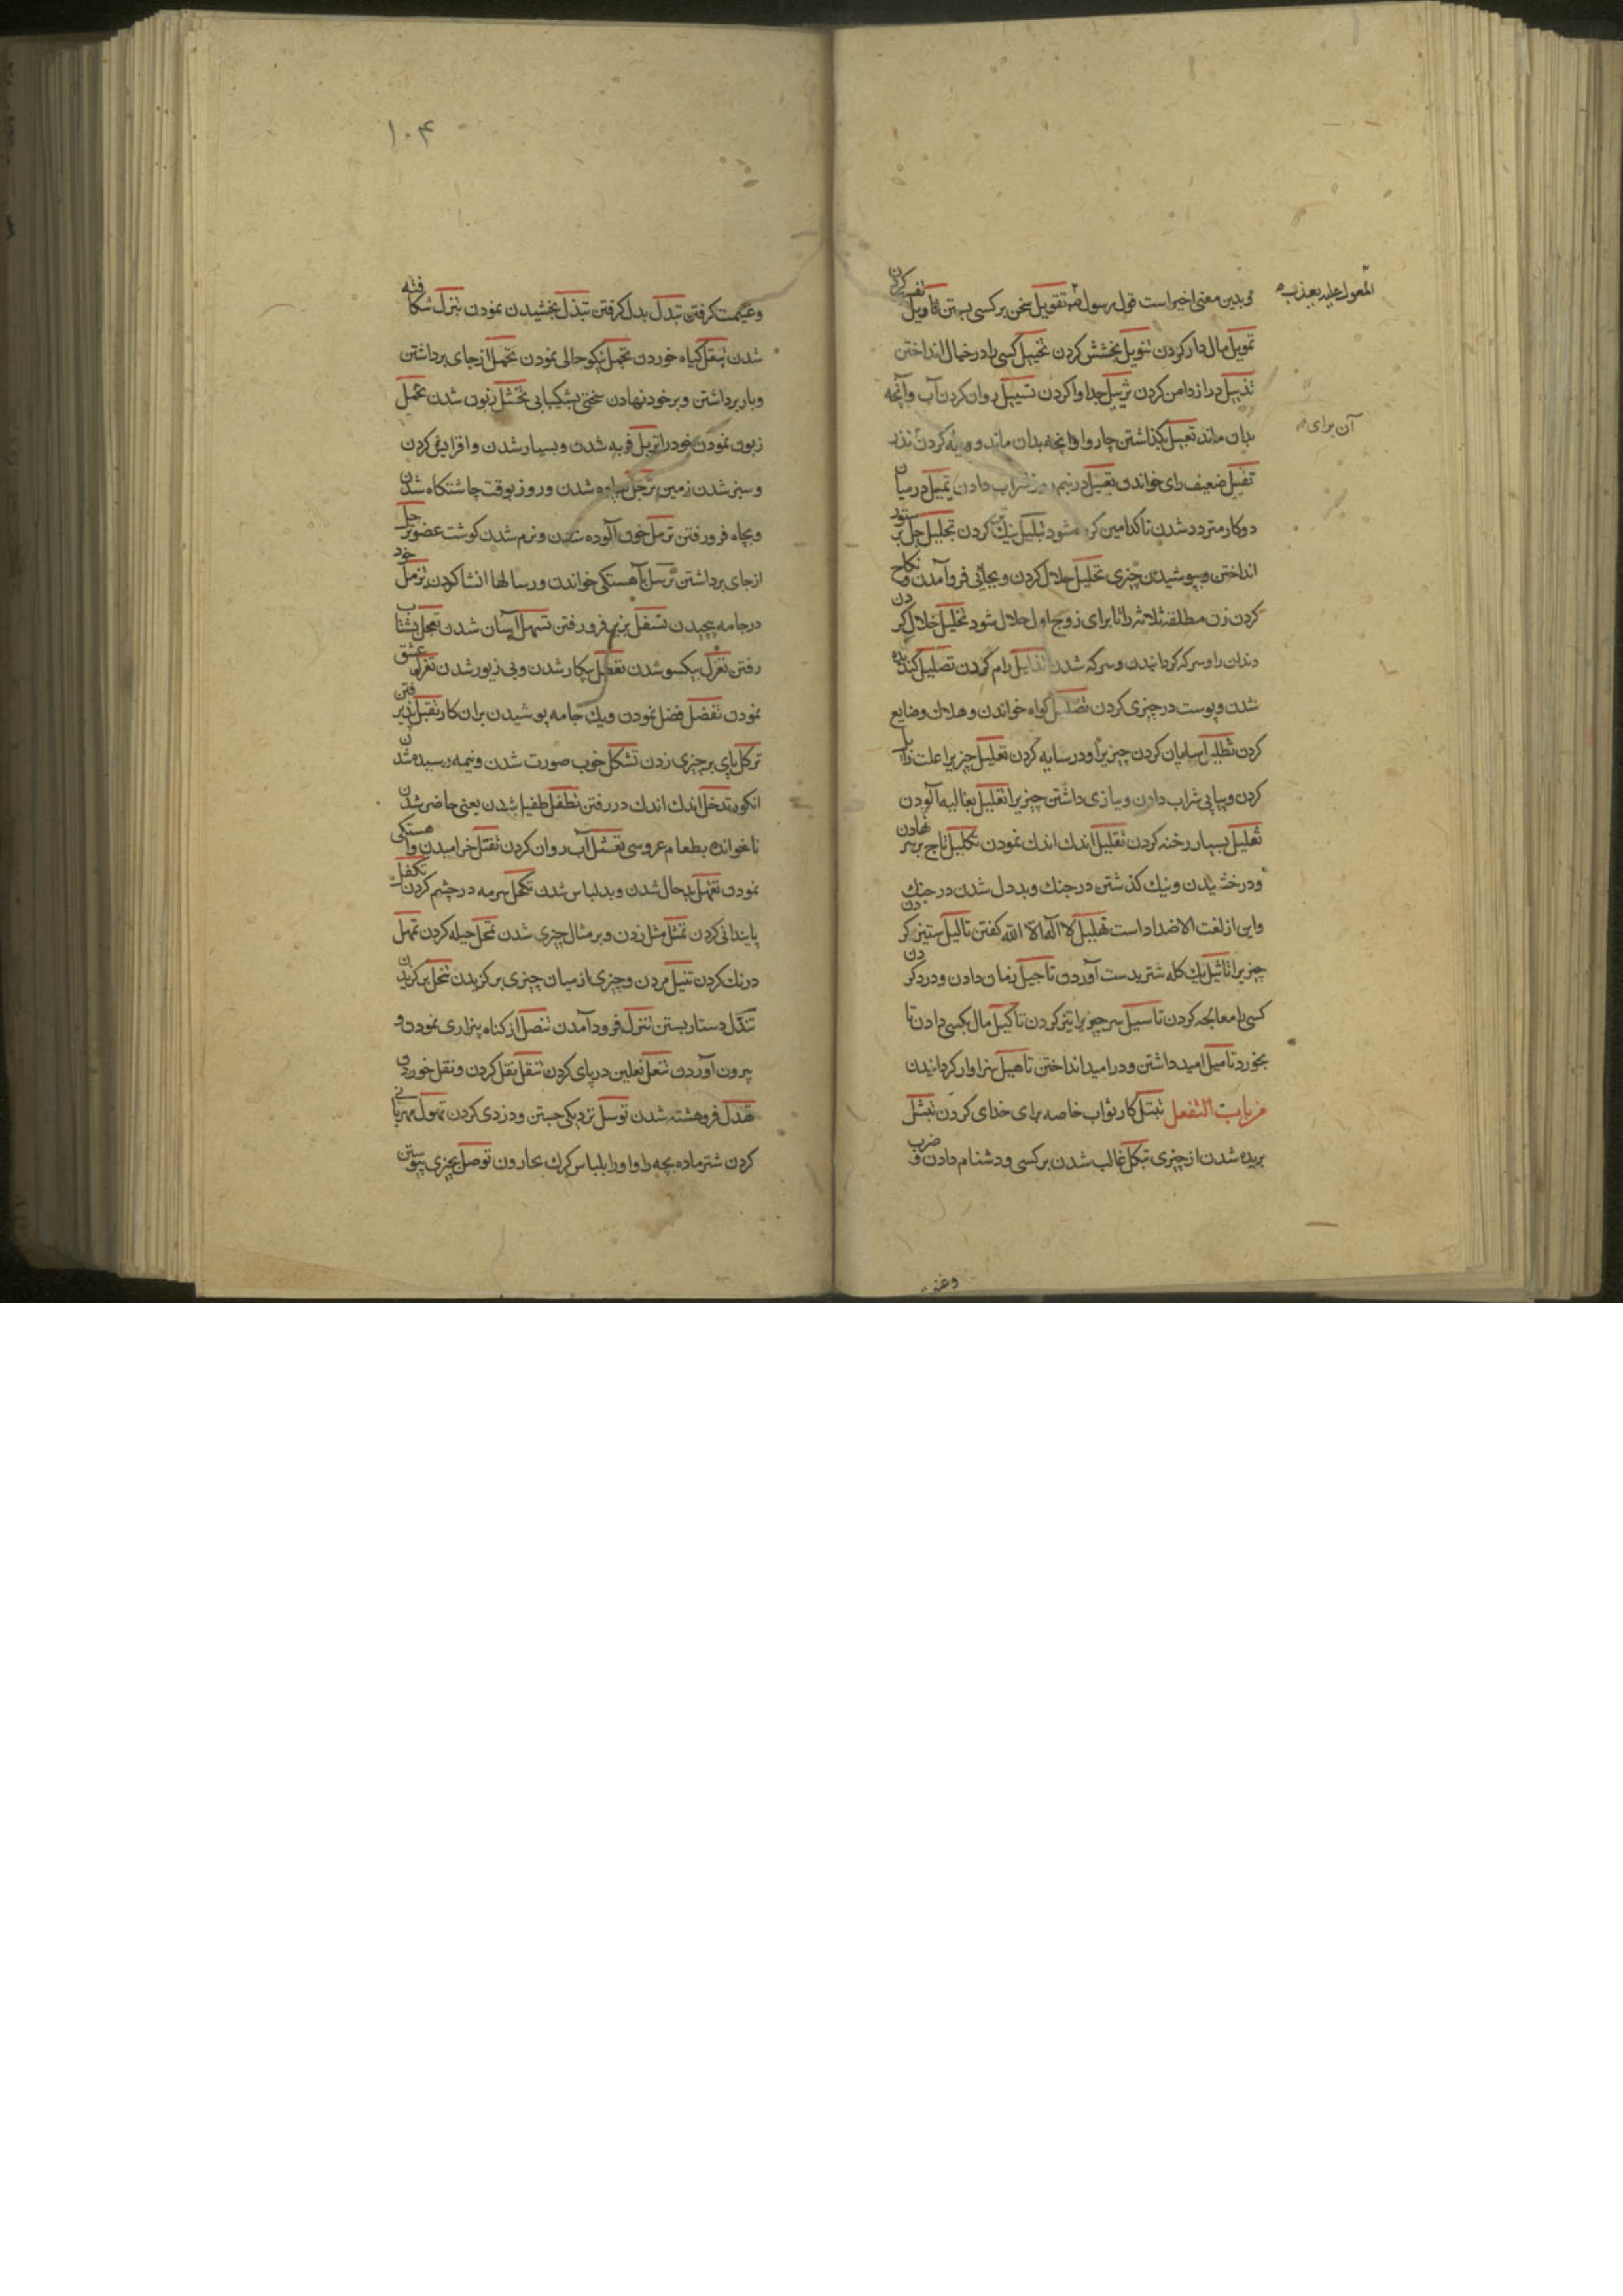 المعول علیه یعذب
و بدین معنی اخیر است قول رسول تقویل سخن بر کسی بستن تاویل تفسیر کردن
تمویل مال دار کردن تنویل بخشش کردن تخییل کسی را در خیال انداختن
تذییل دراز دامن کردن تزییل جدا وا کردن تسییل روان کردن آب و آنچه
آن برای
بدان ماند تعییل بگذاشتن چاروا و آنچه بدان ماند و کردن نذر
تفییل ضعیف رای خواندن تقییل در نیم روز شراب دادن تمییل در میان
دو کار متردد شدن تا کدامین کرده شود تبلیل نیک تر کردن تجلیل جل بر ستور
انداختن و بپوشیدن چیزی تحلیل حلال کردن و بجائی فرو آمدن و نکاح
کردن زن مطلقه ثلاثه را تا برای زوج اول حلال شود تخلیل خلال کردن
دندان را و سرکه کردانیدن و سرکه شدن تذلیل رام کردن تصلیل کنده
شدن و پوست در چیزی کردن تضلیل کراه خواندن و هلاک و ضایع
کردن تظلیل سایه‌بان کردن چیزیرا و در سایه کردن تعلیل چیزیرا علت زایل
کردن و پیاپی شراب دادن و ببازی داشتن چیزیرا تغلیل بغالیه آلودن
تفلیل بسیار رخنه کردن تقلیل اندک اندک نمودن تکلیل تاج بر سر نهادن
و درخشیدن و نیک کذشتن در جنک و بددل شدن در جنک
و این از لغت الاضداد است تهلیل لا اله الا الله کفتن تالیل ستیز کردن
چیزیرا تاثیل یک کله شتر بدست آوردن تاجیل زمان دادن و درد کردن
کسی را معالجه کردن تاسیل سر چوبرا تیز کردن تاکیل مال بکسی دادن تا
بخورد تامیل امید داشتن و در امید انداختن تاهیل سزاوار کردانیدن
من باب التفعل تبتل کار ثواب خاصه برای خدای کردن تبتل
بریده شدن از چیزی تبکل غالب شدن بر کسی و دشنام دادن و ضرب
وغنـ
۱۰۴
و غنیمت کرفتن تبدل بدل کرفتن تبذل بخشیدن نمودن تبزل شکافته
شدن تبقل کیاه خوردن تجمل نیکو حالی نمودن تحمل از جای برداشتن
و بار برداشتن و بر خود نهادن سختی بشکیبایی تخشل زبون شدن تخمل
زبون نمودن خود را تربل فربه شدن و بسیار شدن و افزایش کردن
و سبز شدن زمین ترجل پیاده شدن و روز بوقت چاشتکاه شدن
و بچاه فرو رفتن ترمل خون آلوده شدن و نرم شدن کوشت عضو ترحل
از جای برداشتن ترسل بآهستکی خواندن و رسالها انشا کردن تزمل خود
در جامه پیچیدن تسفل بزیر فرو رفتن تسهل آسان شدن تعجل بشتاب
رفتن تعزل بیکسو شدن تعطل بیکار شدن و بی زیور شدن تغزل عشق
نمودن تفضل فضل نمودن و یک جامه پوشیدن بران کار تقبل پذیرفتن
ترکل پای بر چیزی زدن تشکل خوب صورت شدن و نیمه رسیده شدن
انکور تدخل اندک اندک در رفتن تطفل طفیلی شدن یعنی حاضر شدن
ناخوانده بطعام عروسی تغسل آب روان کردن تقتل خرامیدن و آهستکی
نمودن تقهل بد حال شدن و بد لباس شدن تکحل سرمه در چشم کردن تکفل
پایندانی کردن تمثل مثل زدن و بر مثال چیزی شدن تمحل حیله کردن تمهل
درنک کردن تنبل مردن و چیزی از میان چیزی برکزیدن تنخل برکزیدن
تندل دستار بستن تنزل فرود آمدن تنصل از کناه بیزاری نمودن و
بیرون آوردن تنعل نعلین در پای کردن تنقل نقل کردن و نقل خوردن
تهدل فروهشته شدن توسل نزدیکی جستن و دزدی کردن تهول مهربانی
کردن شتر ماده بچه را و او را بلباس کرک بحارون توصل بچیزی پیوستن